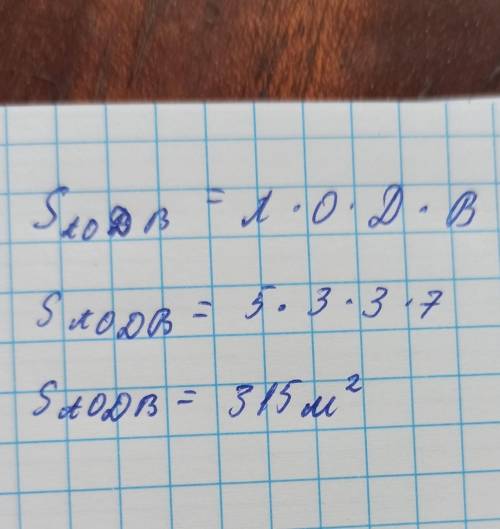 SАОДВ = А · О · Д · В
SАОДВ = 5 · 3 · 3 · 7
SАОДВ = 315 м²